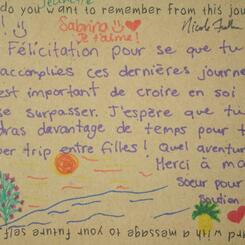 Jeanette
do you want to remember from this jou
! Sabrina
Je t'aime!
Félicitation pour se que tu
accomplies ces dernières journé
est important de croire en soi
se surpasser. J'espère que tu
dras davantage de temps pour t
per trip entre filles! Quel aventur
Merci à ma
soeur pour
ard with a message to your future self